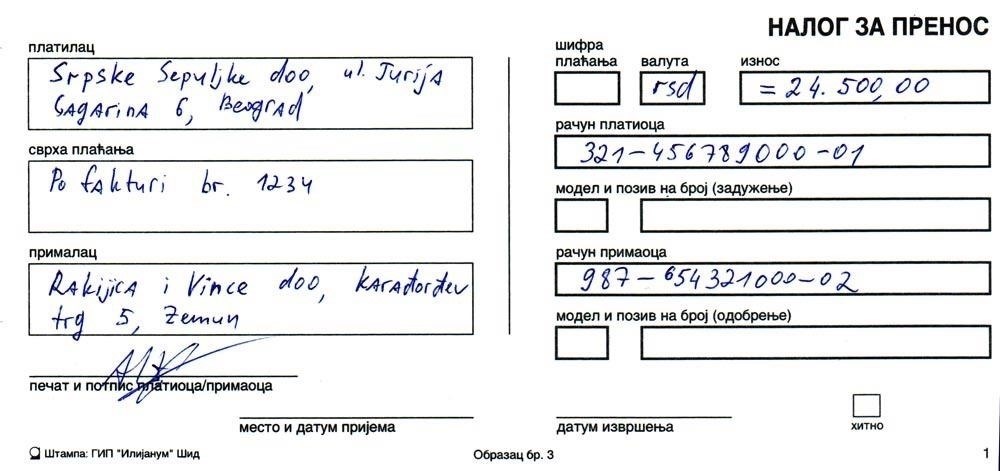 НАЛОГ ЗА ПРЕНОС
платилац
Srpske Sepuljke doo, ul. Jurija
Gagarina 6, Beograd
сврха плаћања
Po fakturi br. 1234
прималац
Rakijica i Vince doo, Karađorđev
trg 5, Zemun
печат и потпис платиоца/примаоца
место и датум пријема
шифра
плаћања валута износ
rsd = 24.500,00
рачун платиоца
321-456789000-01
модел и позив на број (задужење)
рачун примаоца
987-654321000-02
модел и позив на број (одобрење)
датум извршења
хитно
Штампа: ГИП "Илијанум" Шид
Образац бр. 3
1